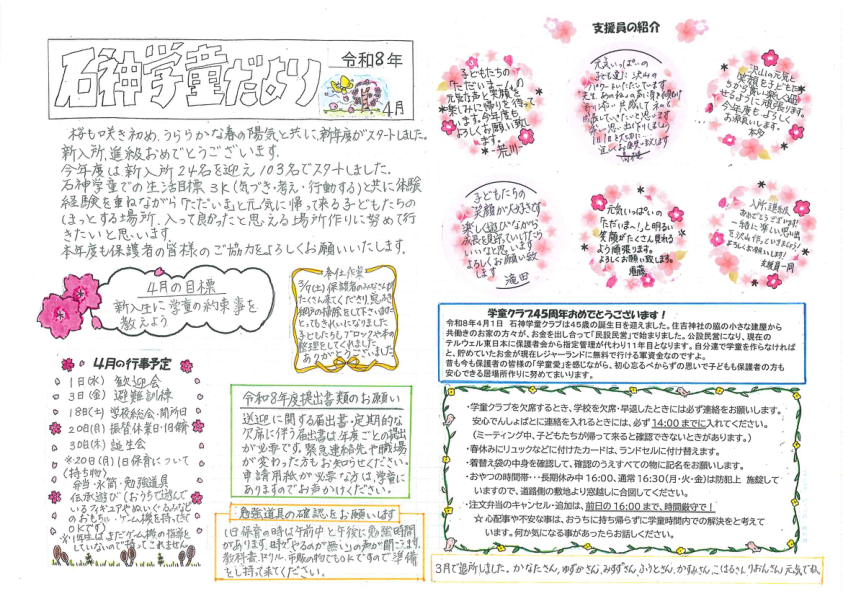 石神学童だより
令和8年
4月
桜も咲き初め、うららかな春の陽気と共に、新年度がスタートしました。
新入所、進級おめでとうございます。
今年度は新入所24名を迎え103名でスタートしました。
石神学童での生活目標3K(気づき・考え・行動する)と共に体験
経験を重ねながら「ただいま」と元気に帰って来る子どもたちの
ほっとする場所、入って良かったと思える場所作りに努めて行
きたいと思います。
本年度も保護者の皆様のご協力をよろしくお願いいたします。
4月の目標
新入生に学童の約束事を
教えよう
奉仕作業
3/7(土)保護者のみなさんが
たくさん来てくださり、窓ふき
網戸の掃除をして下さいました
とってもきれいになりました
子どもたちもブロックや本の
整理をしてくれました
ありがとうございました
4月の行事予定
1日(水) 歓迎会
3日(金) 避難訓練
18日(土) 学校総会・開所日
20日(月) 振替休業日・1日保育
30日(木) 誕生会
※20日(月)1日保育について
(持ち物)
弁当・水筒・勉強道具
伝承遊び(おうちで遊んで
いるフィギュアやぬいぐるみなど
のおもちゃ・ゲーム機を持ってきて
OKです)
※1年生はまだゲーム機の指導を
していないので持ってこれません
令和8年度提出書類のお願い
送迎に関する届出書・定期的な
欠席に伴う届出書は年度ごとの提出
が必要です。緊急連絡先や職場
が変わった方もお知らせください。
申請用紙が必要な方は、学童に
ありますのでお声かけください。
勉強道具の確認をお願いします
1日保育の時は午前中と午後に勉強時間
があります。時々「やるのが無い」の声が聞こえます。
教科書、ドリル、市販の物でもOKですので準備
をし持って来てください。
支援員の紹介
子どもたちの
「ただいま」の
元気な声と笑顔を
楽しみに帰りを待って
います。今年度も
よろしくお願い致
します。
荒川
元気いっぱいの
子ども達に沢山の
パワーをいただいています
宜しくお願い致します
沢山の元気と
笑顔を子どもた
ちから貰い楽しく過ご
せるように頑張ります。
今年度もよろしく
お願いします。
本多
子どもたちの
笑顔が大好きです
楽しく遊びながら
成長を見守っていけたら
いいなと思います
よろしくお願い致
します
滝田
元気いっぱいの
「ただいま~!」と明るい
笑顔がたくさん見れる
よう頑張ります。
よろしくお願い致します。
進藤
入所、進級
おめでとうございます!
一緒に楽しい思い出
を沢山作っていきましょう!
よろしくお願いします!
支援員一同
学童クラブ45周年おめでとうございます!
令和8年4月1日 石神学童クラブは45歳の誕生日を迎えました。住吉神社の脇の小さな建屋から
共働きのお家の方々が、お金を出し合って「民設民営」で始まりました。公設民営になり、現在の
テルウェル東日本に保護者会から指定管理が代わり11年目となります。自分達で学童を作らなければ
と、貯めていたお金が現在レジャーランドに無料で行ける軍資金なのですよ。
昔も今も保護者の皆様の「学童愛」を感じながら、初心忘るべからずの思いで子どもも保護者の方も
安心できる居場所作りに努めてまいります。
・学童クラブを欠席するとき、学校を欠席・早退したときには必ず連絡をお願いします。
安心でんしょばとに連絡を入れるときには、必ず 14:00 までに入れてください。
(ミーティング中、子どもたちが帰って来ると確認できないときがあります。)
・春休みにリュックなどに付けたカードは、ランドセルに付け替えます。
・着替え袋の中身を確認して、確認のうえすべての物に記名をお願いします。
・おやつの時間帯・・・長期休み中 16:00、通常 16:30(月・火・金)は防犯上 施錠して
いますので、道路側の敷地より窓越しに合図してください。
・注文弁当のキャンセル・追加は、前日の 16:00 まで、時間厳守で!
☆心配事や不安な事は、おうちに持ち帰らずに学童時間内での解決をと考えて
います。何か気になる事があったらお話しください。
3月で退所しました。かなたさん、ゆずかさん、みすずさん、ふうとさん、かすみさん、こはるさん、りおんさん 元気でね